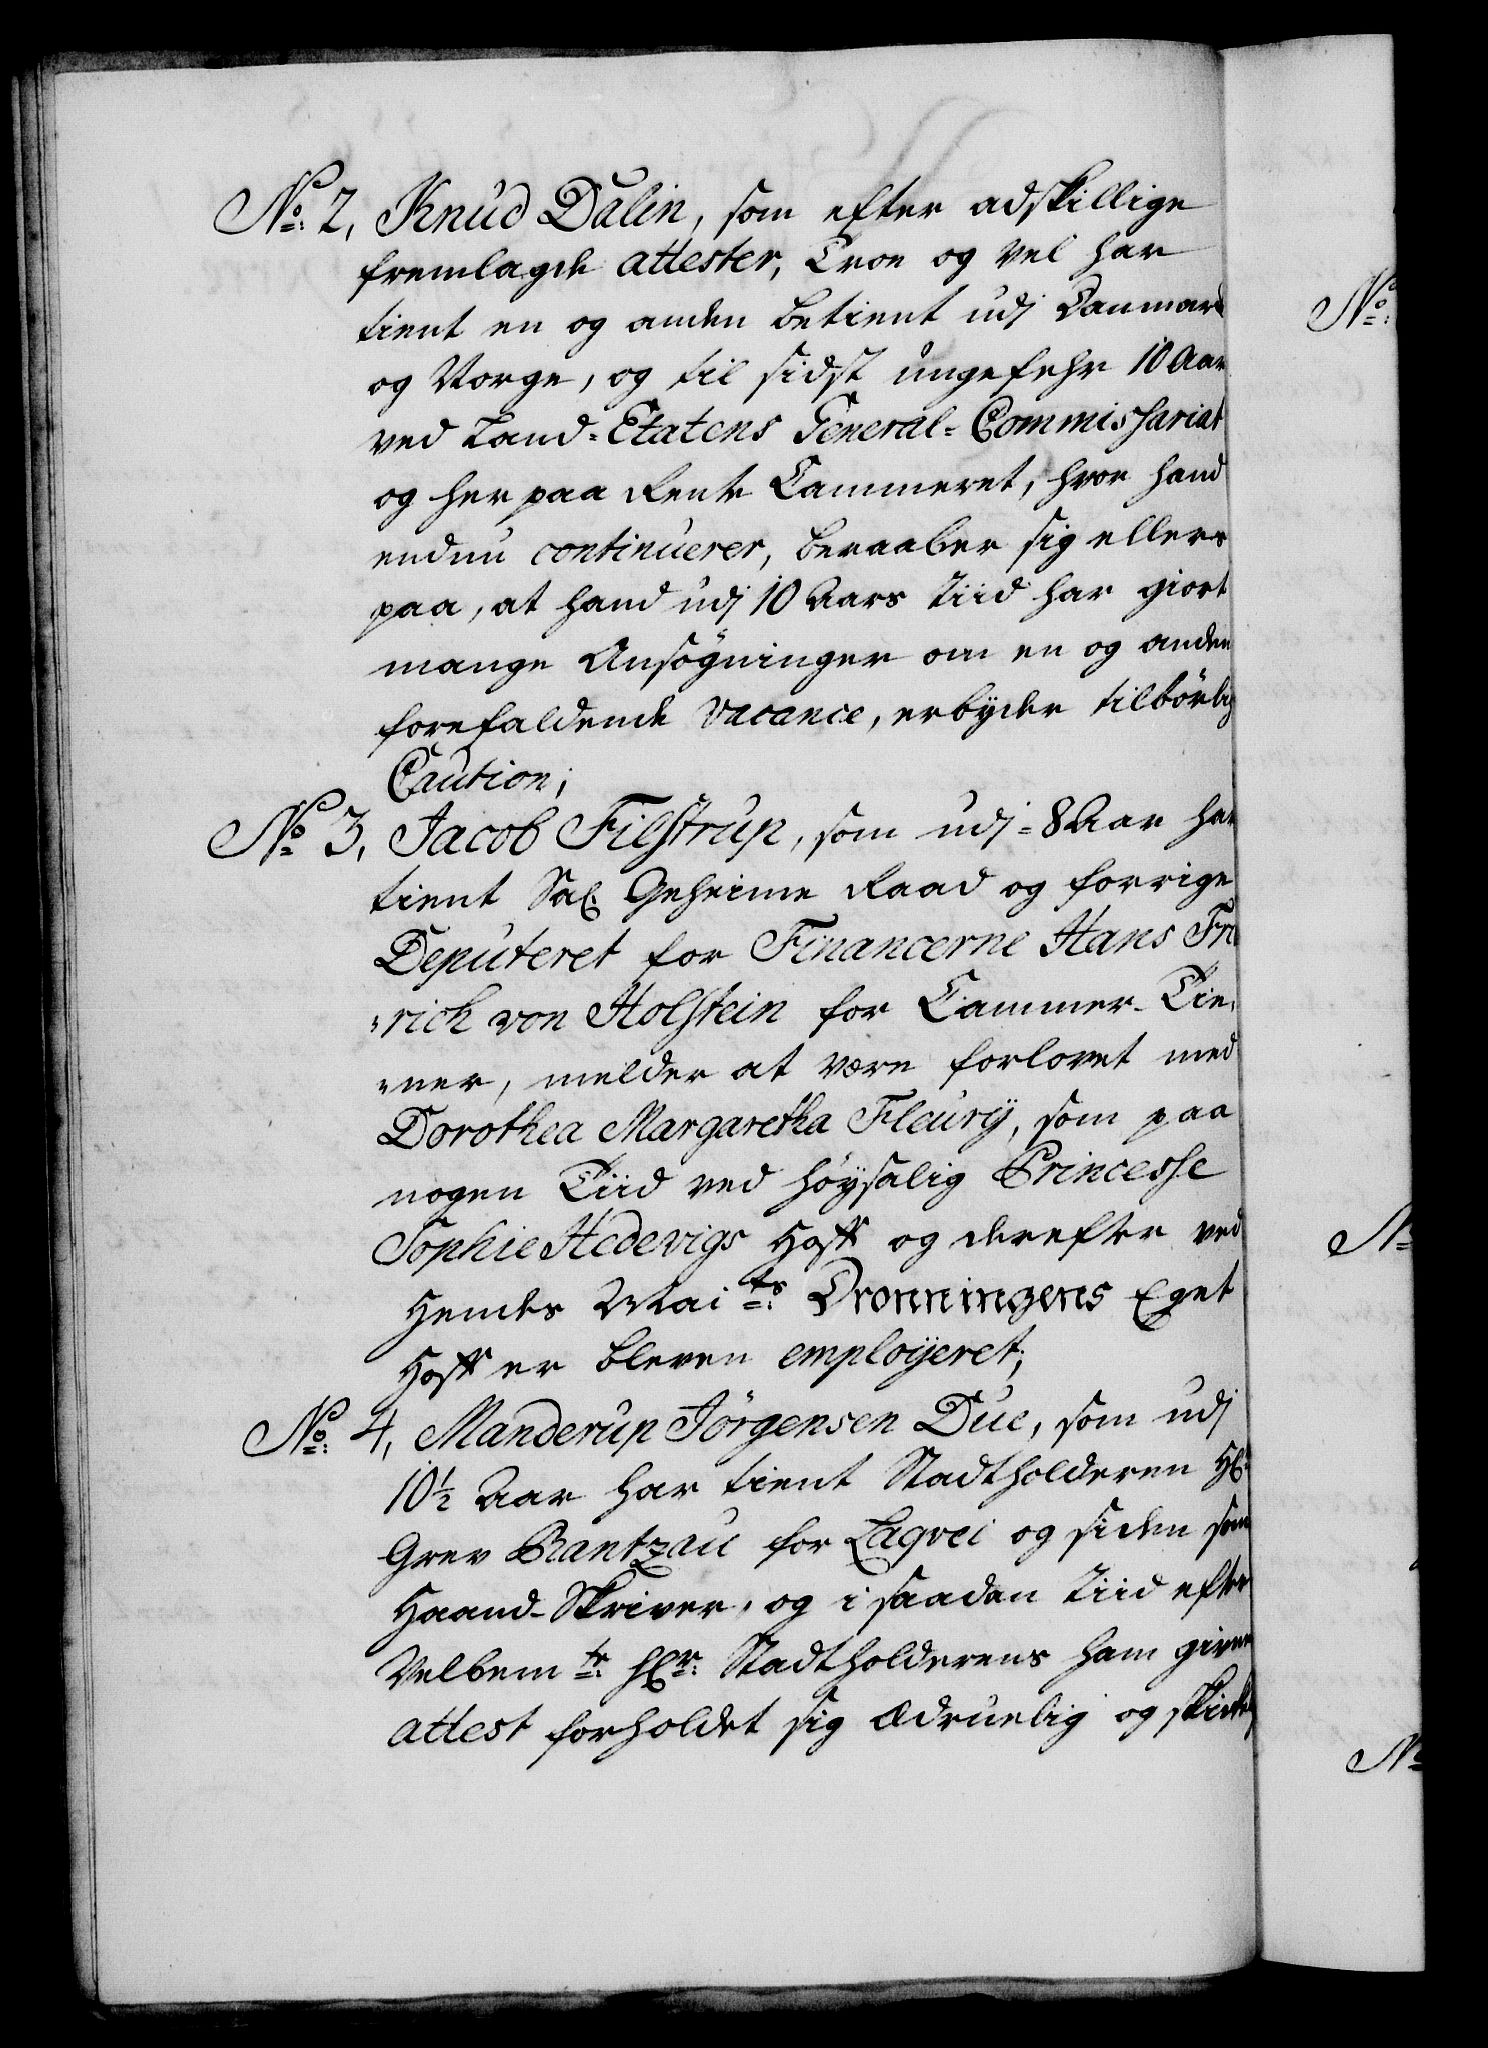 No: 2, Knud Dalin, som efter adskillige
fremlagde attester, troe og vel har
tient en og anden betient udj Danmark
og Norge, og til sidst ungefehr 10 Aar
ved Land-Etatens General-Commissariat
og her paa Rente Cammeret, hvor hand
endnu continuerer, beraaber sig ellers
paa, at hand udj 10 Aars Tiid har giort
mange Ansøgninger om en og anden
forefaldende vacance, erbyder tilbørlig
Caution;
No 3, Jacob Filstrup, som udj 8 Aar har
tient Sal. Geheime Raad og forrige
Deputeret for Financerne Hans Fri
=rich von Holstein for Cammer-Tie=
=ner, melder at være forlovet med
Dorothea Margaretha Fleury, som paa
nogen Tiid ved høysalig Princesse
Sophie Hedevigs Hoff og derefter ved
Hendes Maits: Dronningens Eget
Hoff er bleven employeret;
No: 4, Manderup Jörgensen Due, som udj
10½ Aar har tient Stadtholderen Hr:
Grev Rantzau for Laqvei og siden som
Haand-Skriver, og i saadan Tiid efter
Velbemte: Hr: Stadtholderens ham given
attest forholdet sig ædruelig og skikkelig
No:
No
No